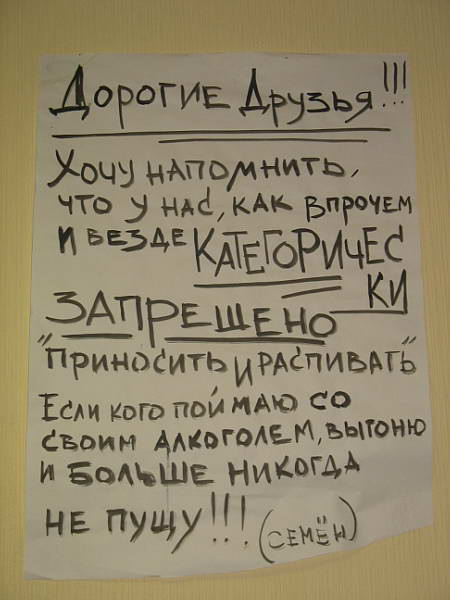 Дорогие Друзья!!!
Хочу напомнить,
что у нас, как впрочем
и везде КАТЕГОРИЧЕС
КИ
ЗАПРЕЩЕНО
"ПРИНОСИТЬ И РАСПИВАТЬ"
Если кого поймаю со
своим алкоголем, выгоню
и больше никогда
не пущу!!! (СЕМЁН)